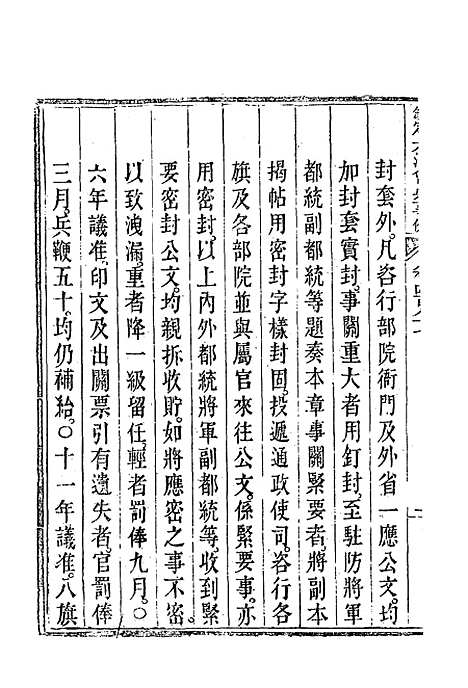 封套外。凡咨行部院衙門及外省一應公文。均
加封套實封。事關重大者用釘封。至駐防將軍
都統副都統等題奏本章事關緊要者。將副本
揭帖用密封字樣封固。投遞通政使司。咨行各
旗及各部院並與屬官來往公文。係緊要事。亦
用密封。以上內外都統將軍副都統等。收到緊
要密封公文。均親拆收貯。如將應密之事不密。
以致洩漏。重者降一級留任。輕者罰俸九月。〇
六年議准。印文及出關票引有遺失者。官罰俸
三月。兵鞭五十。均仍補給。〇十一年議准。八旗